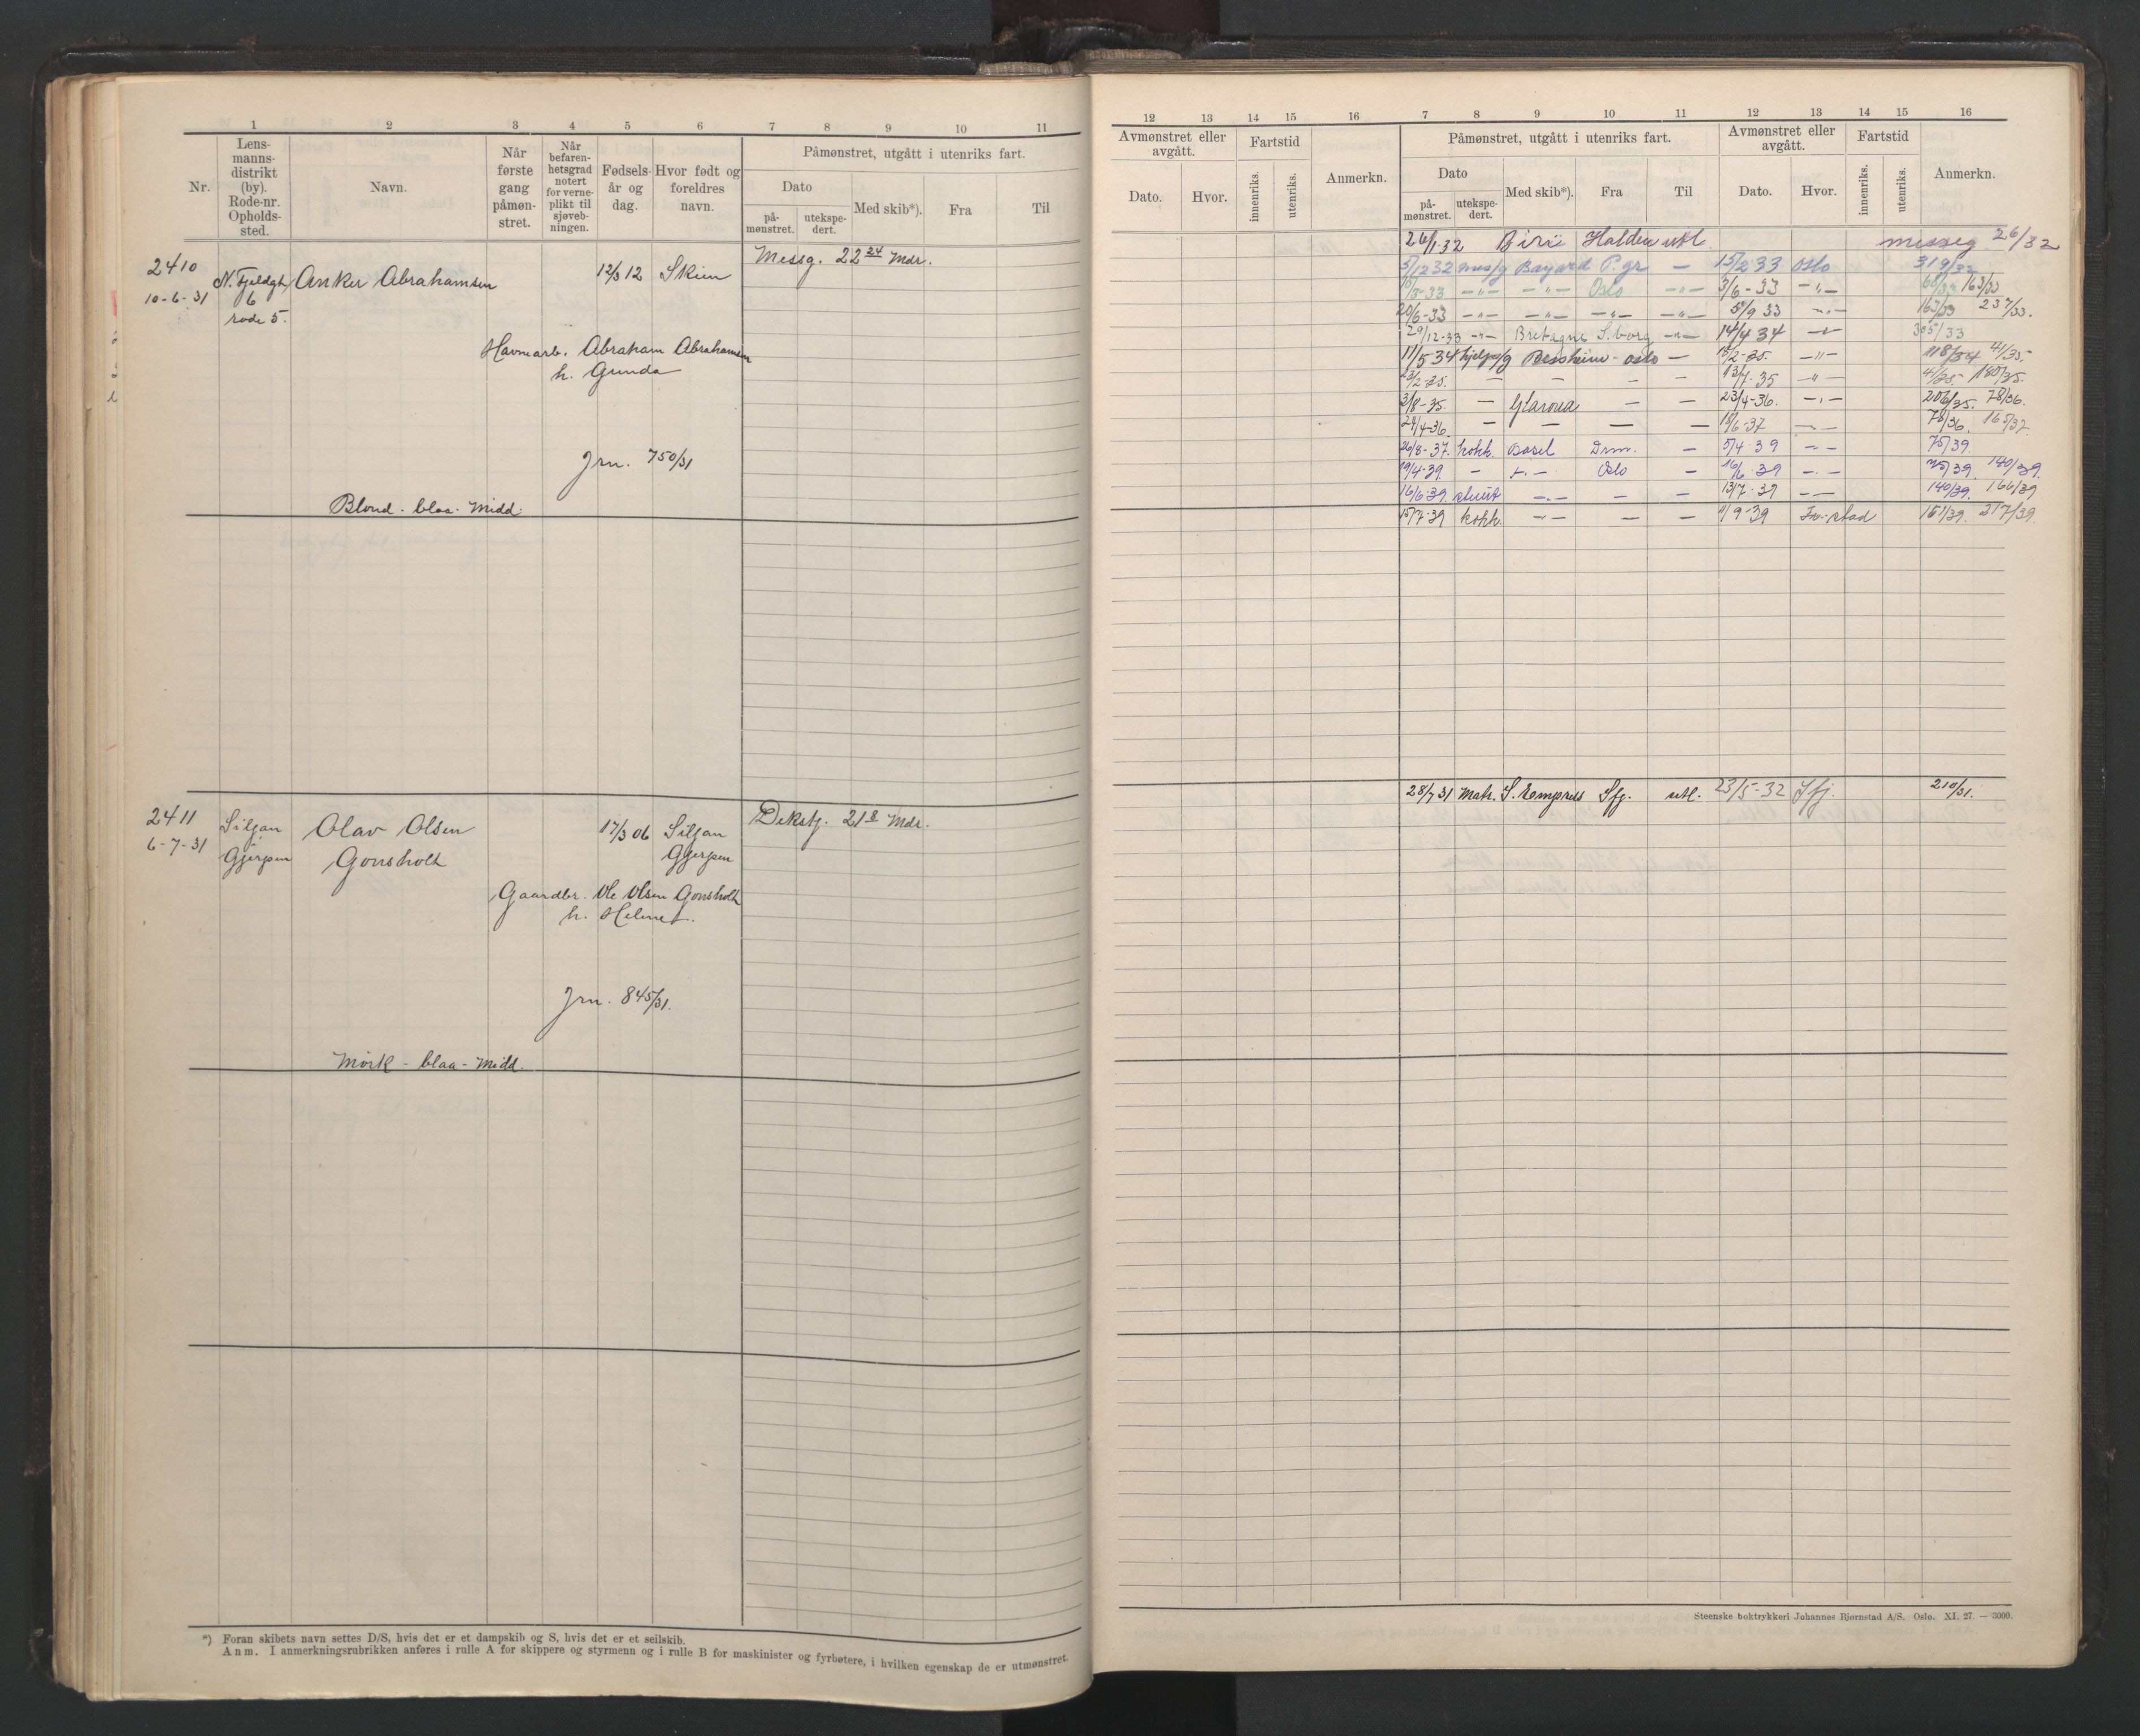 1 2 3 4 5 6 7 8 9 10 11
Nr.
Lens-
manns-
distrikt
(by).
Rode-nr.
Opholds-
sted.
Navn.
Når
første
gang
påmøn-
stret.
Når
befaren-
hetsgrad
notert
for verne-
plikt til
sjøveb-
ningen.
Fødsels-
år og
dag.
Hvor født og
foreldres
navn.
Påmønstret, utgått i utenriks fart.
Dato
på-
mønstret.
utekspe-
dert.
Med skib*).
Fra
Til
2410
10-6-31
N. Fjeldgt.
6
rode 5.
Anker Abrahamsen
12/3 12
Skien
Messg. 22 24 Mdr.
Havnearb. Abraham Abrahamsen
h. Gunda
Jrn. 750/31
Blond - blaa - Midd.
2411
6-7-31
Siljan
Gjerpen
Olav Olsen
Gonsholt
17/3 06
Siljan
Gjerpen
Dekstj. 21 8 Mdr.
Gaardbr. Ole Olsen Gonsholt
h. Helmet.
Jrn. 845/31.
Mörk - blaa - Midd.
*) Foran skibets navn settes D/S, hvis det er et dampskib og S, hvis det er et seilskib.
Anm. I anmerkningsrubrikken anføres i rulle A for skippere og styrmenn og i rulle B for maskinister og fyrbøtere, i hvilken egenskap de er utmønstret.
12 13 14 15 16 7 8 9 10 11 12 13 14 15 16
Avmønstret eller
avgått.
Dato.
Hvor.
Fartstid
innenriks.
utenriks.
Anmerkn.
Påmønstret, utgått i utenriks fart.
Dato
på-
mønstret.
utekspe-
dert.
Med skib*).
Fra
Til
Avmønstret eller
avgått.
Dato.
Hvor.
Fartstid
innenriks.
utenriks.
Anmerkn.
26/1 32 Birii Halden utl. messeg 26/32
5/12 32 mess/g Bayard P.gr — 15/2 33 Oslo 319/32
/3-33 -"- -"- Oslo -"- 3/6-33 -"- 68/33 163/33
20/6-33 -"- -"- -"- -"- 5/9 33 -"- 163/33 237/33.
29/12-33 -"- Bretagne S.borg -"- 14/4 34 -"- 305/33
11/5 34 hjelpeg/g Bessheim - oslo — 15/2-35. -"- 118/34 41/35-
23/2-35. — — — — 13/7-35 -"- 4/35- 180/35.
2/8-35. — Glarona — — 23/4-36. -"- 206/35. 78/36.
24/4-36. — — — — 18/6-37 -"- 78/36. 165/37
26/8-37. kokk. Basel Drm. — 5/4 39 -"- 75/39.
19/4-39. — -"- Oslo — 16/6 39 -"- 75/39. 140/39.
16/6-39. stuert -"- — — 13/7-39 -"- 140/39. 166/39
15/7-39 kokk. -"- — — 11/9-39 Fr.-stad 161/39. 217/39.
28/7 31 Matr. S. Kempress Sfj. utl. 23/5-32 Sfj. 210/31.
Steenske boktrykkeri Johannes Bjørnstad A/S. Oslo. XI. 27. — 5000.